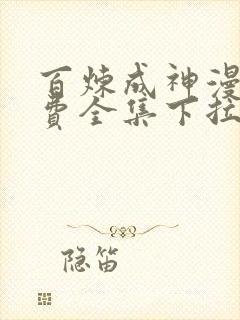 百炼成神漫
费全集下拉
隐笛